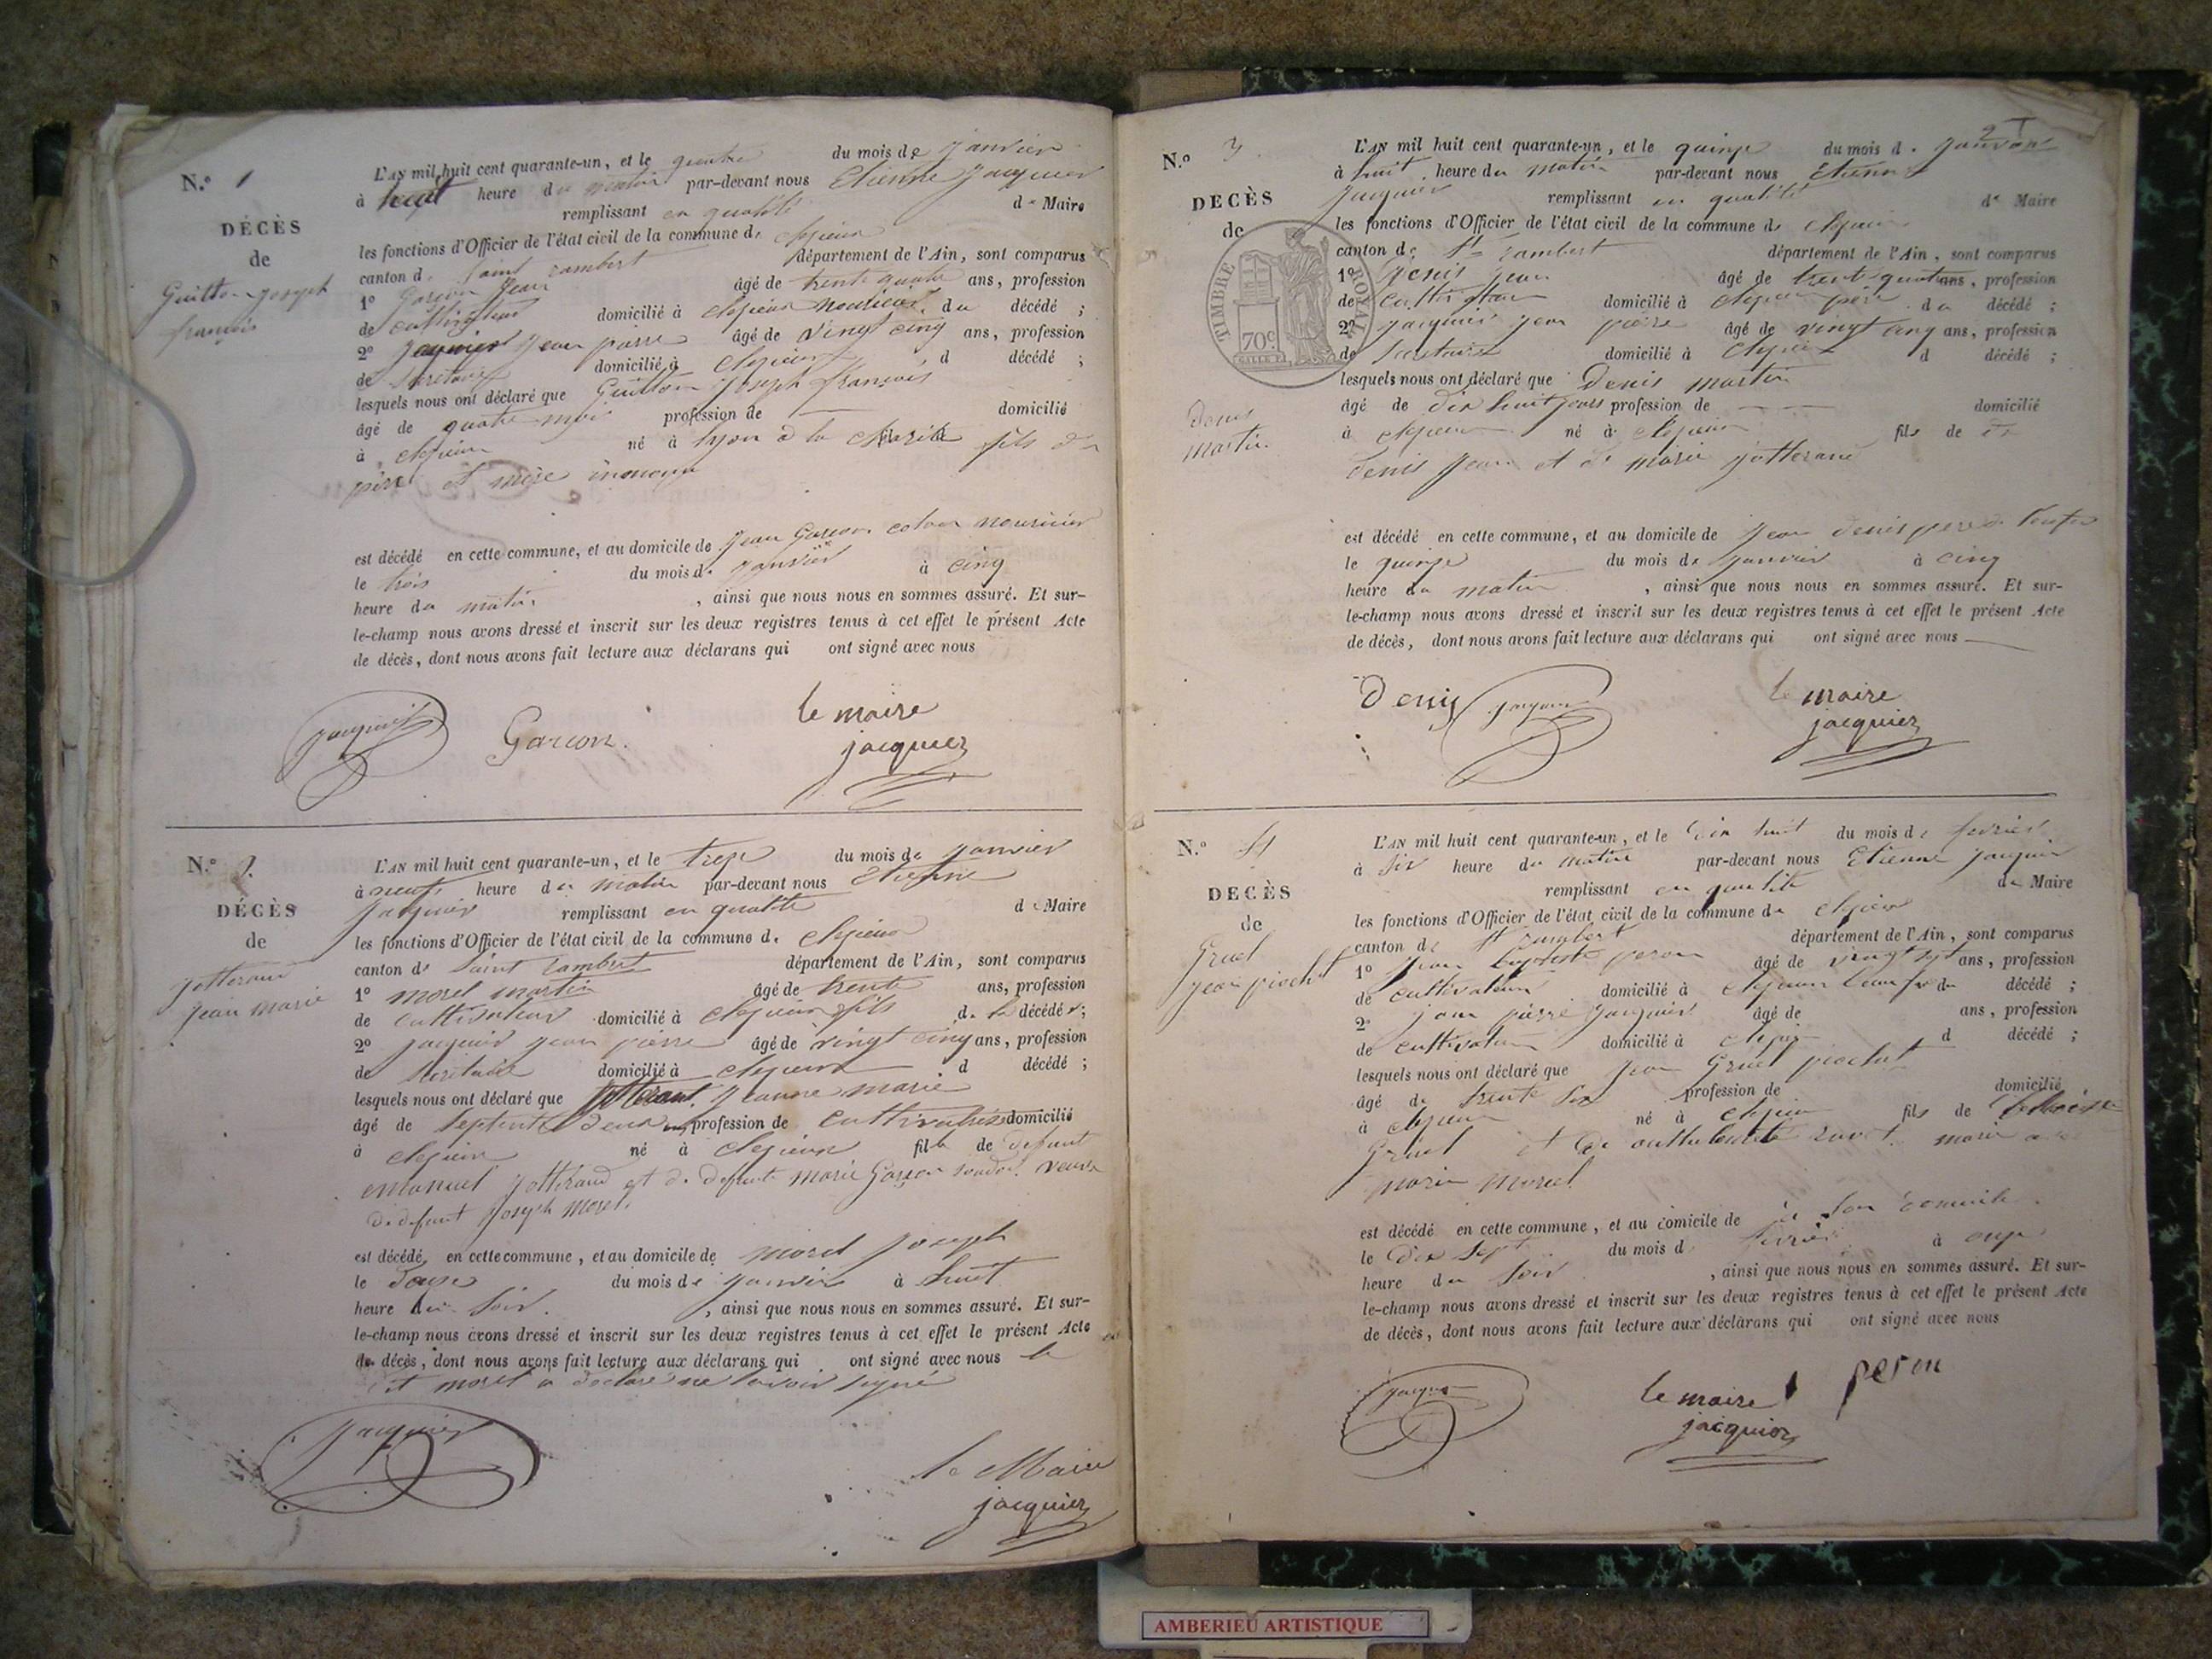 N.º 1
DÉCÈS
de
Guitton joseph
françois
L'AN mil huit cent quarante-un, et le quatre du mois de janvier
à huit heure du matin par-devant nous Etienne Jacquier
remplissant en qualité de Maire
les fonctions d'Officier de l'état civil de la commune de clezieux
canton de Saint rambert département de l'Ain, sont comparus
1º Garçon Jean âgé de trente quatre ans, profession
de cultivateur domicilié à clezieux nouricier du décédé ;
2º jaquier jean pierre âgé de vingt cinq ans, profession
de secretaire domicilié à clezieux d décédé ;
lesquels nous ont déclaré que Guitton joseph françois
âgé de quatre mois profession de — domicilié
à clezieux né à lyon à la charité fils de
père et mère inconnu
est décédé en cette commune, et au domicile de jean Garcon colon nouricier
le trois du mois de janvier à cinq
heure du matin , ainsi que nous nous en sommes assuré. Et sur-
le-champ nous avons dressé et inscrit sur les deux registres tenus à cet effet le présent Acte
de décès, dont nous avons fait lecture aux déclarans qui ont signé avec nous
jacquier Garcon le maire
jacquier
N.º 2
DÉCÈS
de
jotterand
jean marie
L'AN mil huit cent quarante-un, et le treze du mois de janvier
à neuf heure du matin par-devant nous Etienne
jaquier remplissant en qualité d Maire
les fonctions d'Officier de l'état civil de la commune de clezieux
canton de Saint rambert département de l'Ain, sont comparus
1º morel martin âgé de trente ans, profession
de cultivateur domicilié à clezieux fils de la décédé ;
2º jaquier jean pierre âgé de vingt cinq ans, profession
de secretaire domicilié à clezieux d décédé ;
lesquels nous ont déclaré que jotterant jeanne marie
âgé de septente deux ans profession de cultivatrice domicilié
à clezieux né à clezieux fille de defunt
emanuel jotterand et de defunte marie Garçon veuve
de defunt joseph morel
est décédé en cette commune, et au domicile de morel joseph
le douze du mois de janvier à huit
heure du soir , ainsi que nous nous en sommes assuré. Et sur-
le-champ nous avons dressé et inscrit sur les deux registres tenus à cet effet le présent Acte
de décès, dont nous avons fait lecture aux déclarans qui ont signé avec nous le
dit morel a declaré ne savoir signé
jacquier
le Maire
jacquier
2
N.º 3
DÉCÈS
de
TIMBRE ROYAL
70c
denis
martin
L'AN mil huit cent quarante-un, et le quinze du mois de janvier
à huit heure du matin par-devant nous Etienne
jacquier remplissant en qualité de Maire
les fonctions d'Officier de l'état civil de la commune de clezieux
canton de St rambert département de l'Ain, sont comparus
1º denis jean âgé de trente quatre ans, profession
de cultivateur domicilié à clezieux père du décédé ;
2º jacquier jean pierre âgé de vingt cinq ans, profession
de secretaire domicilié à clezieux d décédé ;
lesquels nous ont déclaré que denis martin
âgé de dix huit jours profession de — domicilié
à clezieux né à clezieux fils de
denis jean et de marie jotterand
est décédé en cette commune, et au domicile de jean denis pere de l'enfan
le quinze du mois de janvier à cinq
heure du matin , ainsi que nous nous en sommes assuré. Et sur-
le-champ nous avons dressé et inscrit sur les deux registres tenus à cet effet le présent Acte
de décès, dont nous avons fait lecture aux déclarans qui ont signé avec nous
Denis jacquier le maire
jacquier
N.º 4
DÉCÈS
de
Gruel
jean piochut
L'AN mil huit cent quarante-un, et le dix huit du mois de fevrier
à dix heure du matin par-devant nous Etienne jacquier
remplissant en qualité de Maire
les fonctions d'Officier de l'état civil de la commune de clezieux
canton de St rambert département de l'Ain, sont comparus
1º jean baptiste peron âgé de vingt sept ans, profession
de cultivateur domicilié à clezieux beau fr du décédé ;
2º jean pierre jacquier âgé de ans, profession
de cultivateur domicilié à clezieux d décédé ;
lesquels nous ont déclaré que jean Gruel piochut
âgé de trente six profession de domicilié
à clezieux né à clezieux fils de
Gruel et de marie a
marie morel
est décédé en cette commune, et au domicile de à son domicile
le dix sept du mois d fevrier à onze
heure du soir , ainsi que nous nous en sommes assuré. Et sur-
le-champ nous avons dressé et inscrit sur les deux registres tenus à cet effet le présent Acte
de décès, dont nous avons fait lecture aux déclarans qui ont signé avec nous
jacquier le maire peron
jacquier
AMBERIEU ARTISTIQUE